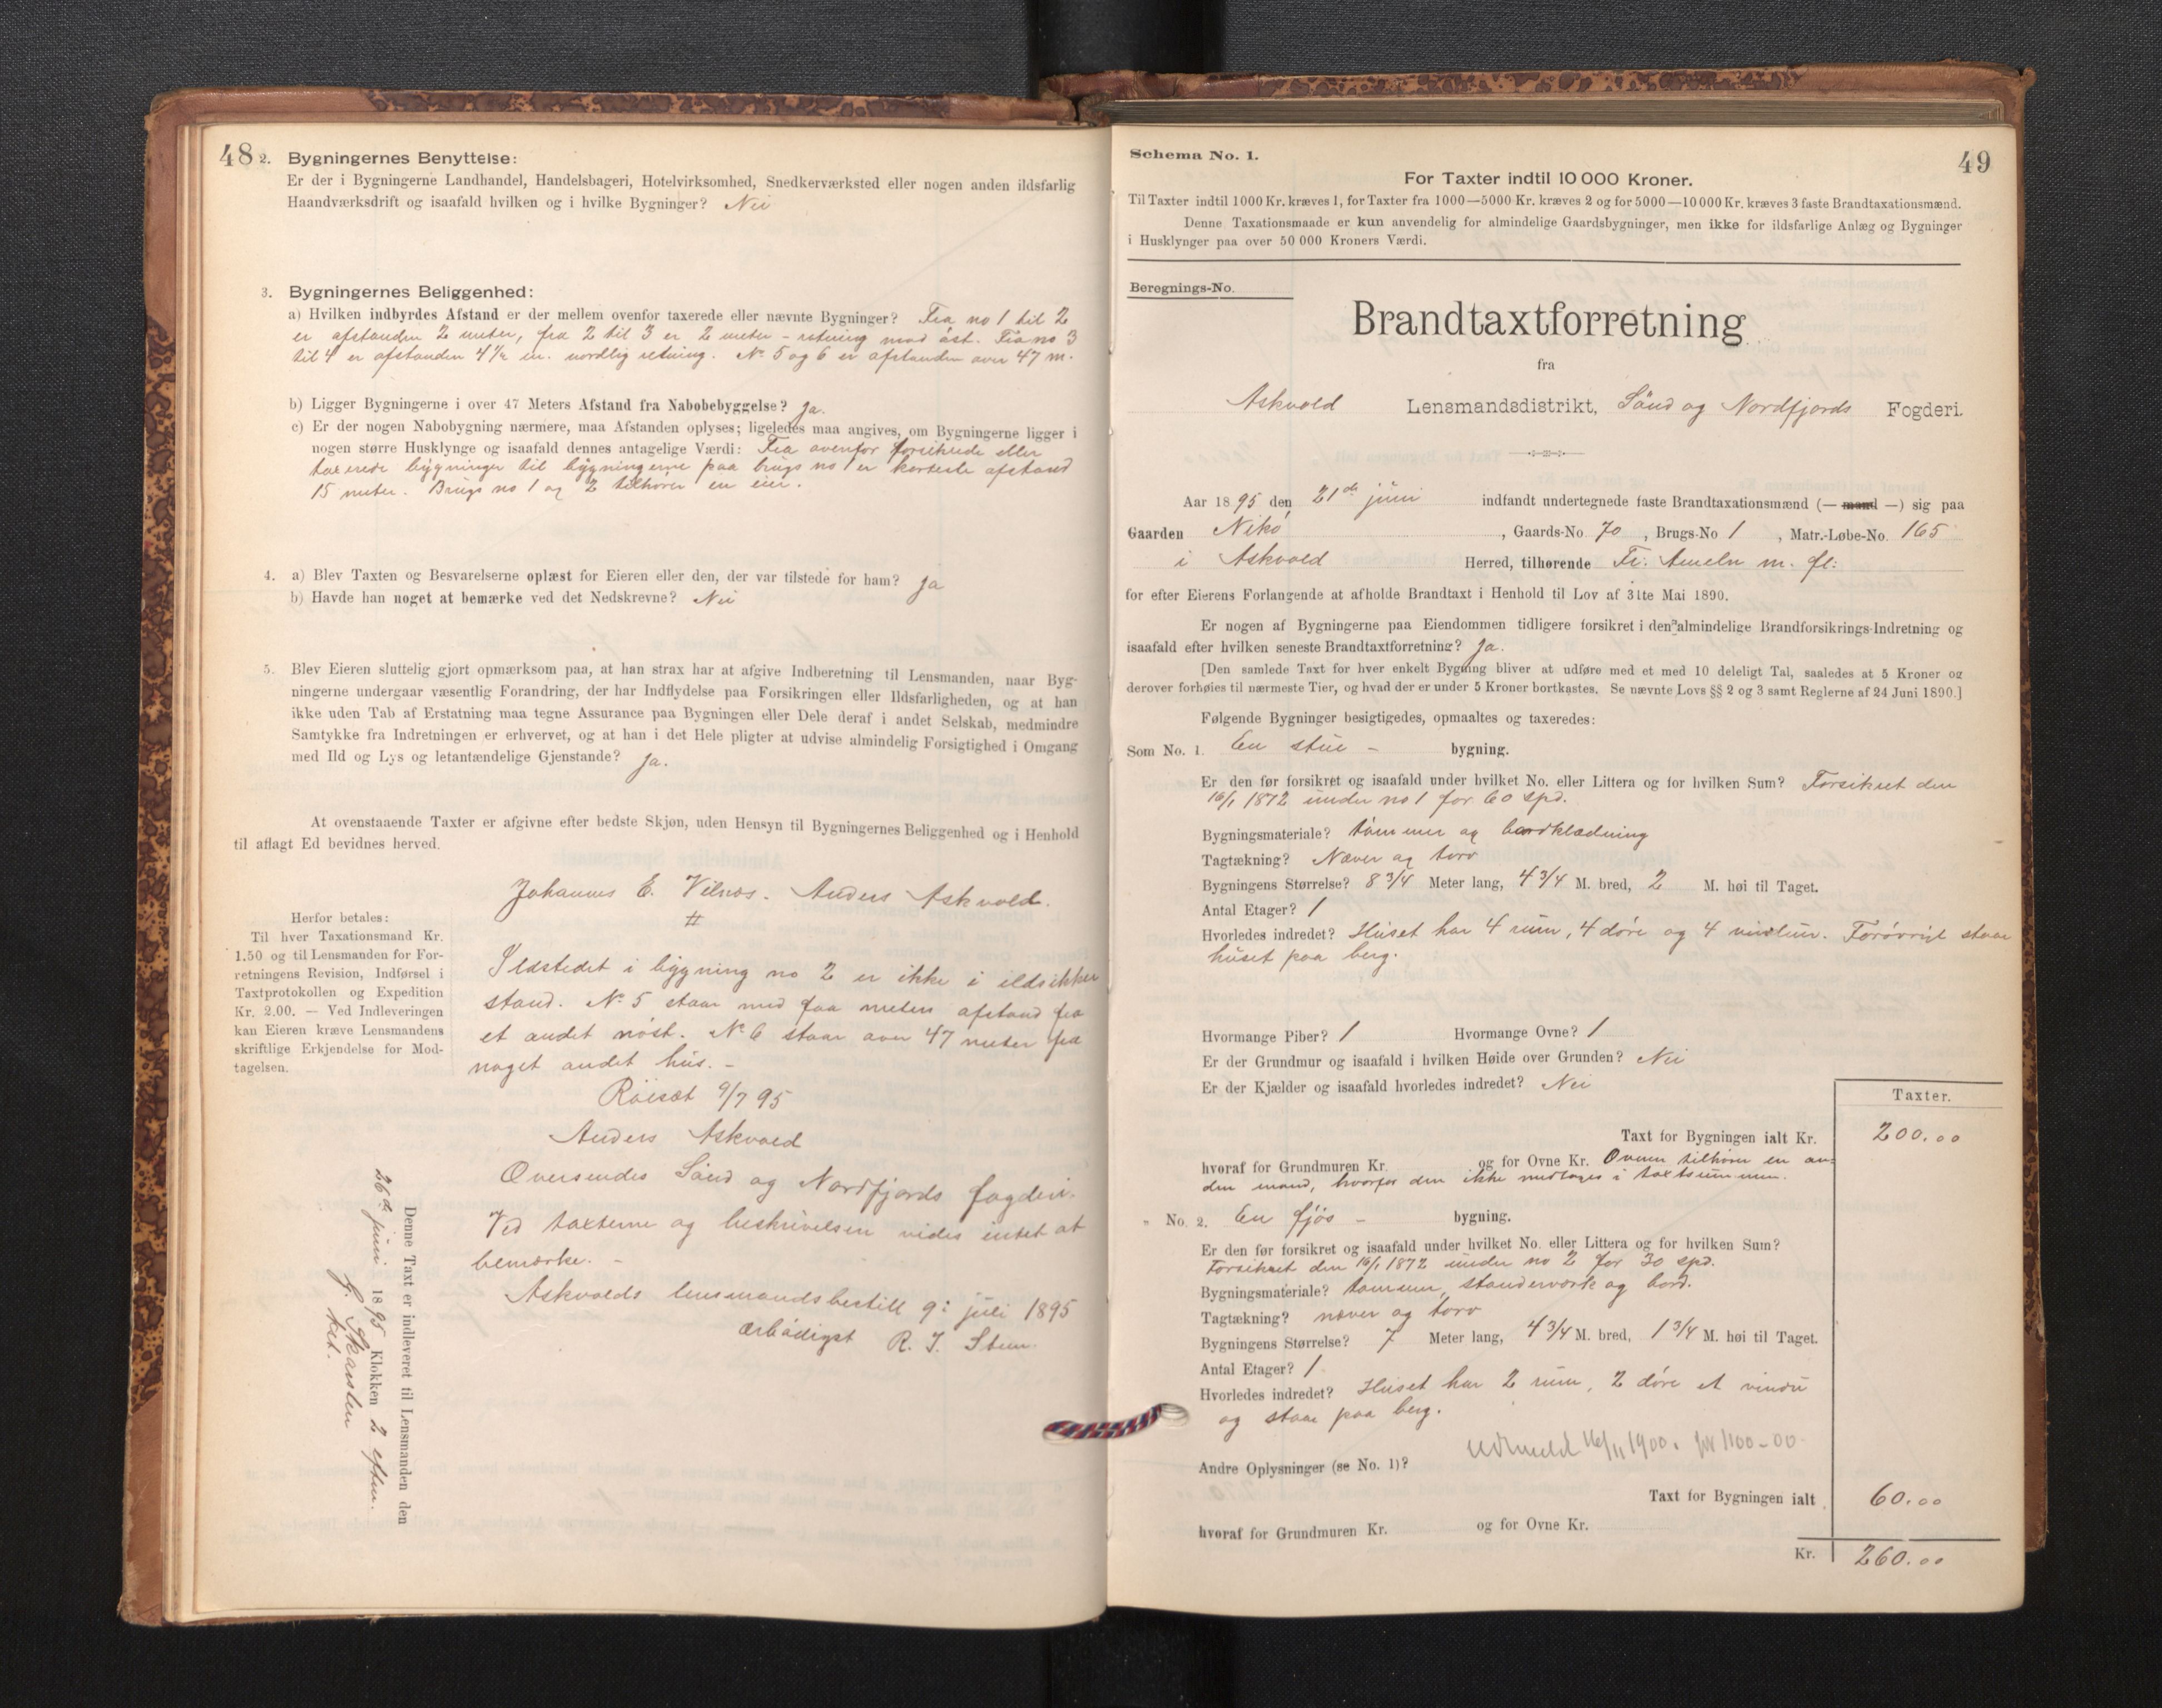 48
2. Bygningernes Benyttelse:
Er der i Bygningerne Landhandel, Handelsbageri, Hotelvirksomhed, Snedkerværksted eller nogen anden ildsfarlig
Haandværksdrift og isaafald hvilken og i hvilke Bygninger? Nei
3. Bygningernes Beliggenhed:
a) Hvilken indbyrdes Afstand er der mellem ovenfor taxerede eller nævnte Bygninger? Fra no 1 til 2
er afstanden 2 meter, fra 2 til 3 er 2 meter - retning mod øst. Fra no 3
til 4 er afstanden 4½ m. nordlig retning. No 5 og 6 er afstanden over 47 m.
b) Ligger Bygningerne i over 47 Meters Afstand fra Nabobebyggelse? Ja.
c) Er der nogen Nabobygning nærmere, maa Afstanden oplyses; ligeledes maa angives, om Bygningerne ligger i
nogen større Husklynge og isaafald dennes antagelige Værdi: Fra ovenfor forsikrede eller
taxerede bygninger til bygningerne paa brugs no 1 er korteste afstand
15 meter. Brugs no 1 og 2 tilhører en eier.
4. a) Blev Taxten og Besvarelserne oplæst for Eieren eller den, der var tilstede for ham? Ja
b) Havde han noget at bemærke ved det Nedskrevne? Nei
5. Blev Eieren sluttelig gjort opmærksom paa, at han strax har at afgive Indberetning til Lensmanden, naar Byg-
ningerne undergaar væsentlig Forandring, der har Indflydelse paa Forsikringen eller Ildsfarligheden, og at han
ikke uden Tab af Erstatning maa tegne Assurance paa Bygningen eller Dele deraf i andet Selskab, medmindre
Samtykke fra Indretningen er erhvervet, og at han i det Hele pligter at udvise almindelig Forsigtighed i Omgang
med Ild og Lys og letantændelige Gjenstande? Ja.
At ovenstaaende Taxter er afgivne efter bedste Skjøn, uden Hensyn til Bygningernes Beliggenhed og i Henhold
til aflagt Ed bevidnes herved.
Johannes E. Vilnæs. Anders Askvold.
#
Herfor betales:
Til hver Taxationsmand Kr.
1.50 og til Lensmanden for For-
retningens Revision, Indførsel i
Taxtprotokollen og Expedition
Kr. 2.00. — Ved Indleveringen
kan Eieren kræve Lensmandens
skriftlige Erkjendelse for Mod-
tagelsen.
Ildstedet i bygning no 2 er ikke i ildsikker
stand. No 5 staar med faa meters afstand fra
et andet nøst. No 6 staar over 47 meter fra
noget andet hus. -
Röiset 9/7 95
Anders Askvold
Oversendes Sønd og Nordfjords fogderi.
Ved taxterne og beskrivelsen vides intet at
bemærke. -
Askvolds lensmandsbestill 9: juli 1895
ærbødigst R. J. Steen
Denne Taxt er indleveret til Lensmanden den
26de juni 1895 Klokken 2 efterm.
49
Schema No. 1.
For Taxter indtil 10 000 Kroner.
Til Taxter indtil 1000 Kr. kræves 1, for Taxter fra 1000—5000 Kr. kræves 2 og for 5000—10 000 Kr. kræves 3 faste Brandtaxationsmænd.
Denne Taxationsmaade er kun anvendelig for almindelige Gaardsbygninger, men ikke for ildsfarlige Anlæg og Bygninger
i Husklynger paa over 50 000 Kroners Værdi.
Beregnings-No.
Brandtaxtforretning
fra
Askvold Lensmandsdistrikt, Sönd og Nordfjords Fogderi.
Aar 1895 den 21de juni indfandt undertegnede faste Brandtaxationsmænd (— mand —) sig paa
Gaarden Nikö, Gaards-No 70, Brugs-No 1, Matr.-Løbe-No. 165
i Askvold Herred, tilhørende Fr. Ameln m. fl:
for efter Eierens Forlangende at afholde Brandtaxt i Henhold til Lov af 31te Mai 1890.
Er nogen af Bygningerne paa Eiendommen tidligere forsikret i den almindelige Brandforsikrings-Indretning og
isaafald efter hvilken seneste Brandtaxtforretning? Ja.
[Den samlede Taxt for hver enkelt Bygning bliver at udføre med et med 10 deleligt Tal, saaledes at 5 Kroner og
derover forhøies til nærmeste Tier, og hvad der er under 5 Kroner bortkastes. Se nævnte Lovs §§ 2 og 3 samt Reglerne af 24 Juni 1890.]
Følgende Bygninger besigtigedes, opmaaltes og taxeredes:
Som No. 1. En stue - bygning.
Er den før forsikret og isaafald under hvilket No. eller Littera og for hvilken Sum? Forsikret den
16/1 1872 under no 1 for 60 spd.
Bygningsmateriale? tømmer og bordklædning
Tagtækning? Næver og torv
Bygningens Størrelse? 8 3/4 Meter lang, 4 3/4 M. bred, 2 M. høi til Taget.
Antal Etager? 1
Hvorledes indredet? Huset har 4 rum, 4 döre og 4 vinduer. Forövrigt staar
huset paa berg.
Hvormange Piber? 1 Hvormange Ovne? 1
Er der Grundmur og isaafald i hvilken Høide over Grunden? Nei
Er der Kjælder og isaafald hvorledes indredet? Nei
Taxter.
Taxt for Bygningen ialt Kr. 200.00
hvoraf for Grundmuren Kr. og for Ovne Kr. Ovnen tilhører en an-
den mand, hvorfor den ikke medtages i taxtsummen.
" No. 2. En fjös - bygning.
Er den før forsikret og isaafald under hvilket No. eller Littera og for hvilken Sum?
Forsikret den 16/1 1872 under no 2 for 30 spd.
Bygningsmateriale? tømmer, standerværk og bord.
Tagtækning? næver og torv
Bygningens Størrelse? 7 Meter lang, 4 3/4 M. bred, 1 3/4 M. høi til Taget.
Antal Etager? 1
Hvorledes indredet? Huset har 2 rum, 2 döre et vindu
og staar paa berg.
Udmeldt 16/11 1900. for 1100-00
Andre Oplysninger (se No. 1)?
Taxt for Bygningen ialt 60.00
hvoraf for Grundmuren Kr. og for Ovne Kr.
Kr. 260.00